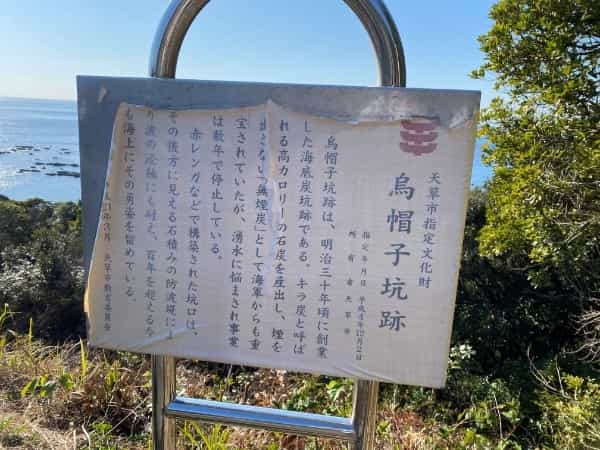 天草市指定文化財
烏帽子坑跡
指定年月日 平成4年12月2日
所有者 天草市
烏帽子坑跡は、明治三十年頃に創業
した海底炭坑跡である。キラ炭と呼ば
れる高カロリーの石炭を産出し、煙を
出さない「無煙炭」として海軍からも重
宝されていたが、湧水に悩まされ事業
は数年で停止している。
赤レンガなどで構築された坑口は、
その後方に見える石積みの防波堤によ
り波の浸蝕にも耐え、百年を超える今
も海上にその勇姿を留めている。
年3月 天草市教育委員会